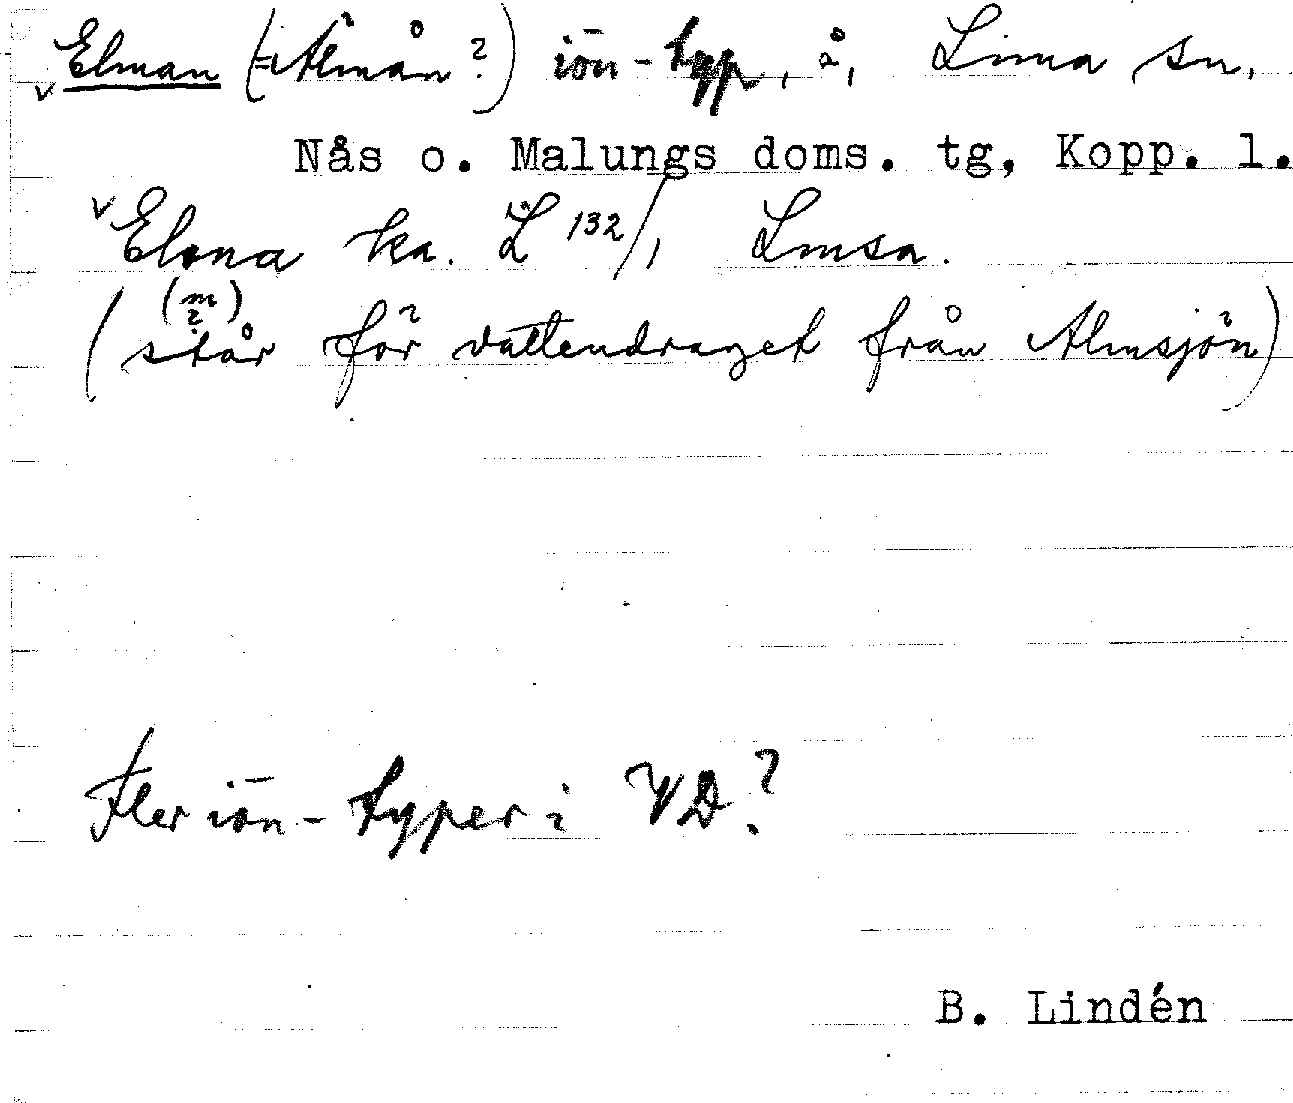 Elman (=Älmån?) iōn-typ, å, Lima sn,
Nås o. Malungs doms. tg, Kopp. l.
Elona ka. L 132/1 Lmsa.
(m?)
(står för vattendraget från Älmsjön)
Fler iōn-typer i VD?
B. Lindén